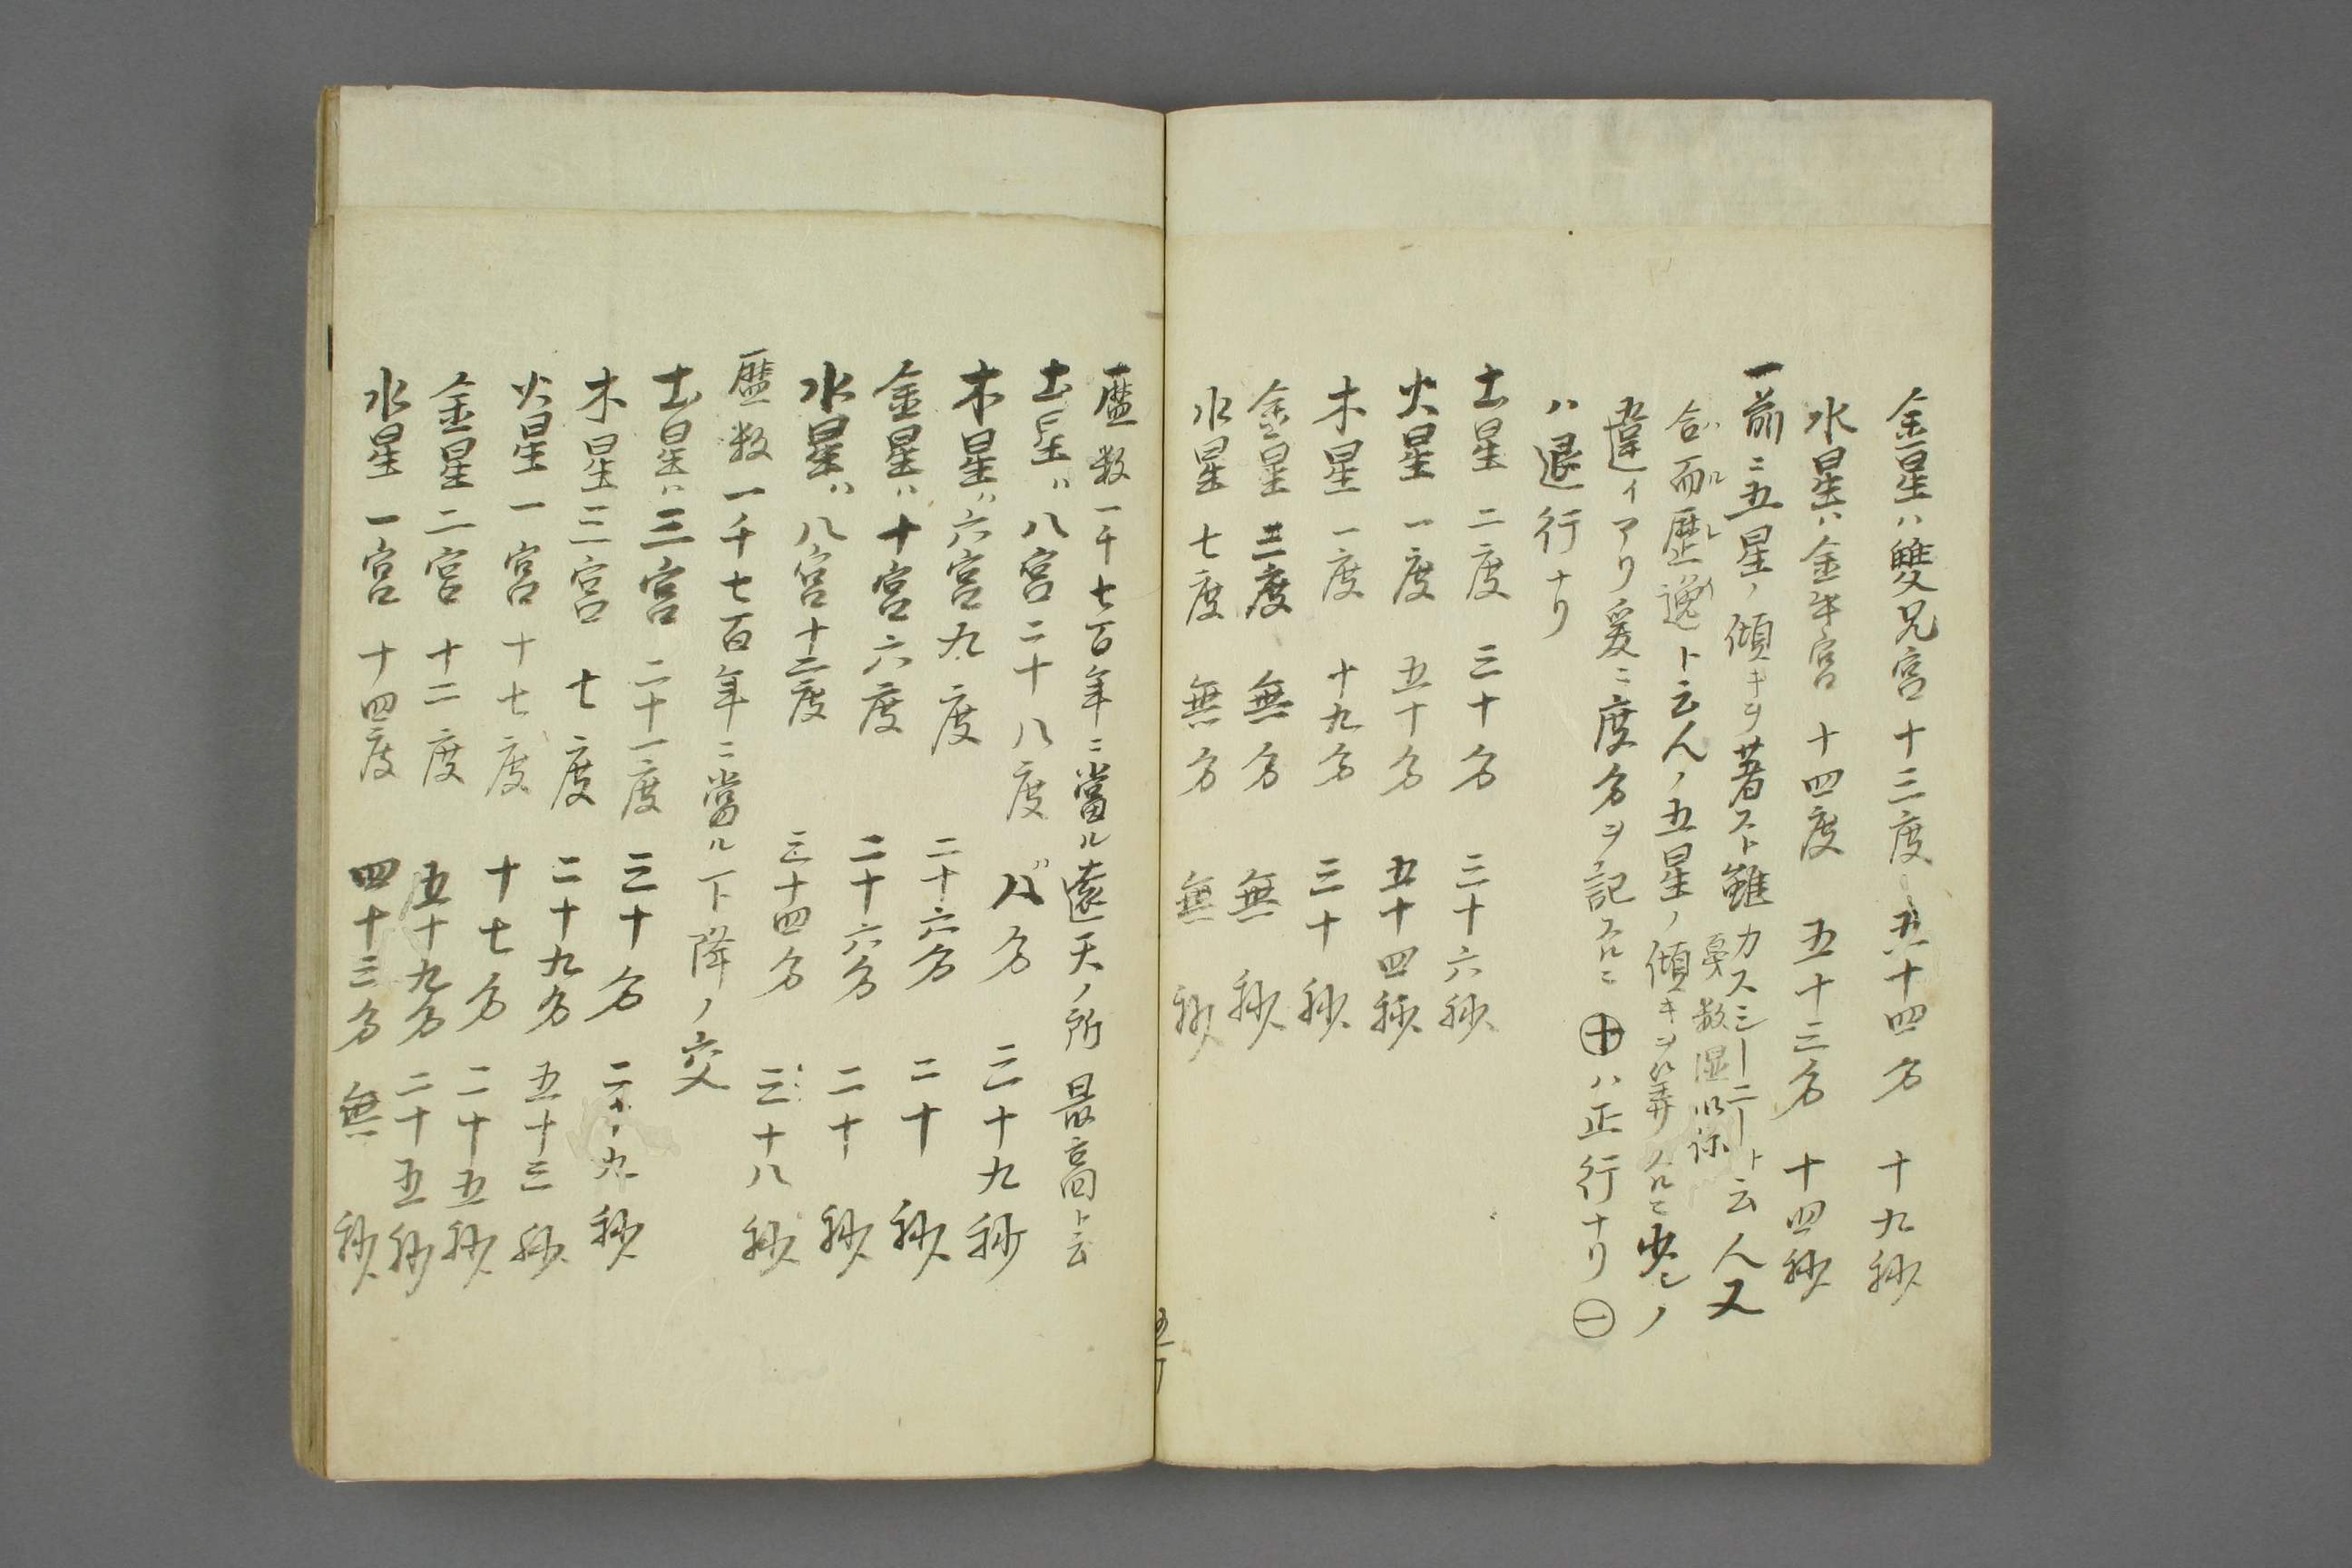 金星ハ雙兄宮十三度五十四分十九秒
水星ハ金牛宮十四度五十三分十四秒
一前ニ五星ノ傾キヲ著スト雖カスシーニート云人又
合而歴逸ト云人ノ五星ノ傾キヲ算スルニ少シノ
違イアリ爰ニ度分ヲ記スルニ㊉ハ正行ナリ㊀
ハ退行ナリ
土星二度三十分三十六秒
火星一度五十分五十四秒
木星一度十九分三十秒
金星三度無分無秒
水星七度無分無秒
暦数一千七百年ニ當ル遠天ノ所最高ト云
土星ハ八宮二十八度八分三十九秒
木星ハ六宮九度二十六分二十秒
金星ハ十宮六度二十六分二十秒
水星ハ八宮十二度三十四分三十八秒
暦数一千七百年ニ當ル下降ノ交
土星ハ三宮二十一度三十分二十九秒
木星三宮七度二十九分五十三秒
火星一宮十七度十七分二十五秒
金星二宮十二度五十九分二十五秒
水星一宮十四度四十三分無秒